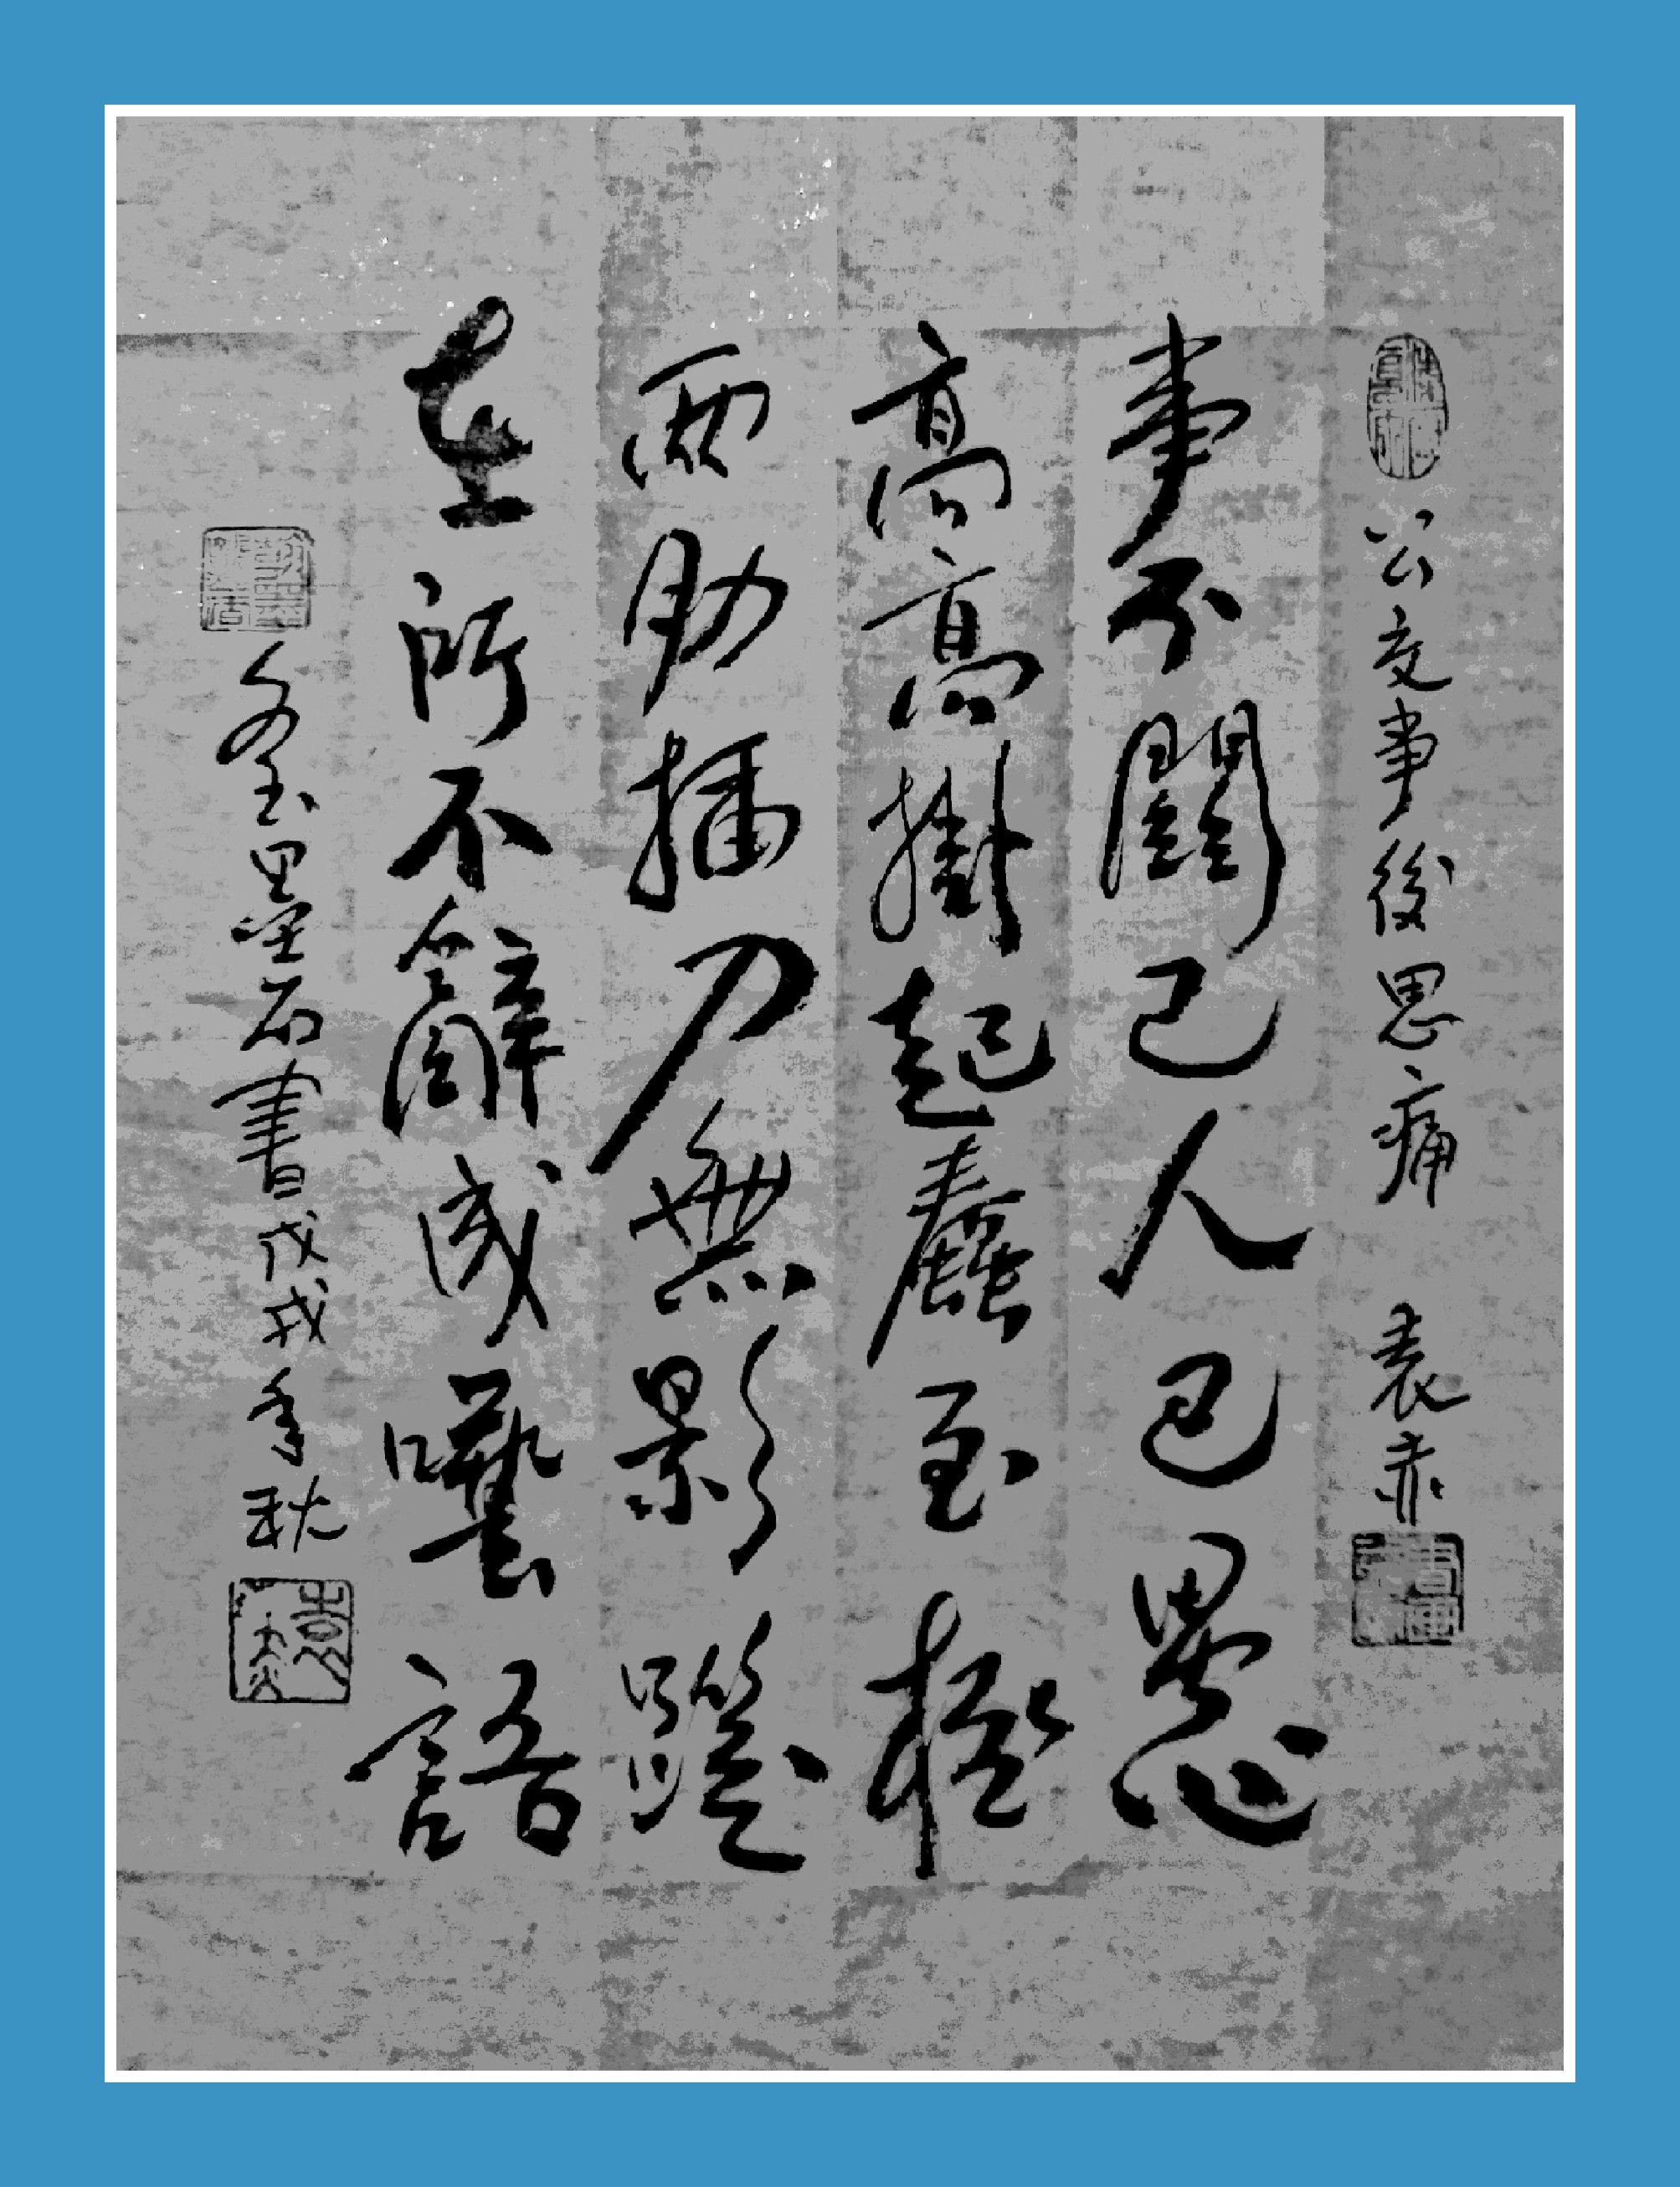 公交事後思痛 袁赤
事不關己人已愚
高高掛起蠢至極
兩肋插刀無影蹤
在所不辭成囈語
墨石書戊戌年秋